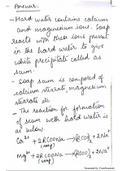 - Answer.
- Hard water contains calcium
and magnesium ions. Soap
reacts with these ions present
in the hard water to give
white precipitate called as
scum.
- Soap scum is composed of
calcium stearate, magnesium
stearate etc
- The reaction for formation
of scum with hard water is
as below
Ca²⁺ + 2RCOONa → (RCOO)₂ + 2Na⁺
(soap)
Mg²⁺ + 2RCOONa → (RCOO)₂ + 2Na⁺
(soap)